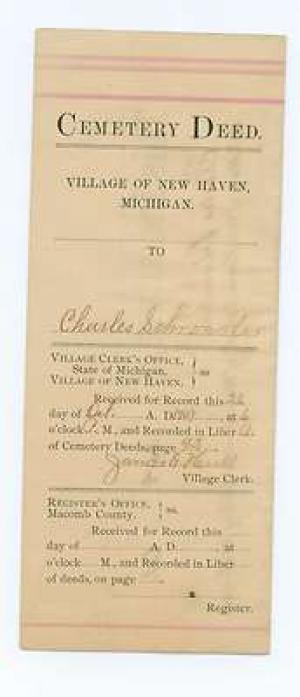 CEMETERY DEED.
VILLAGE OF NEW HAVEN,
MICHIGAN.
TO
Charles
VILLAGE CLERK'S OFFICE,
State of Michigan. } ss
VILLAGE OF NEW HAVEN.
Received for Record this 22
day of Oct. A. D. at 6
o'clock P. M., and Recorded in Liber
of Cemetery Deeds, page
Village Clerk.
REGISTER'S OFFICE,
Macomb County. } ss.
Received for Record this
day of A. D. , at
o'clock M., and Recorded in Liber
of deeds, on page
Register.